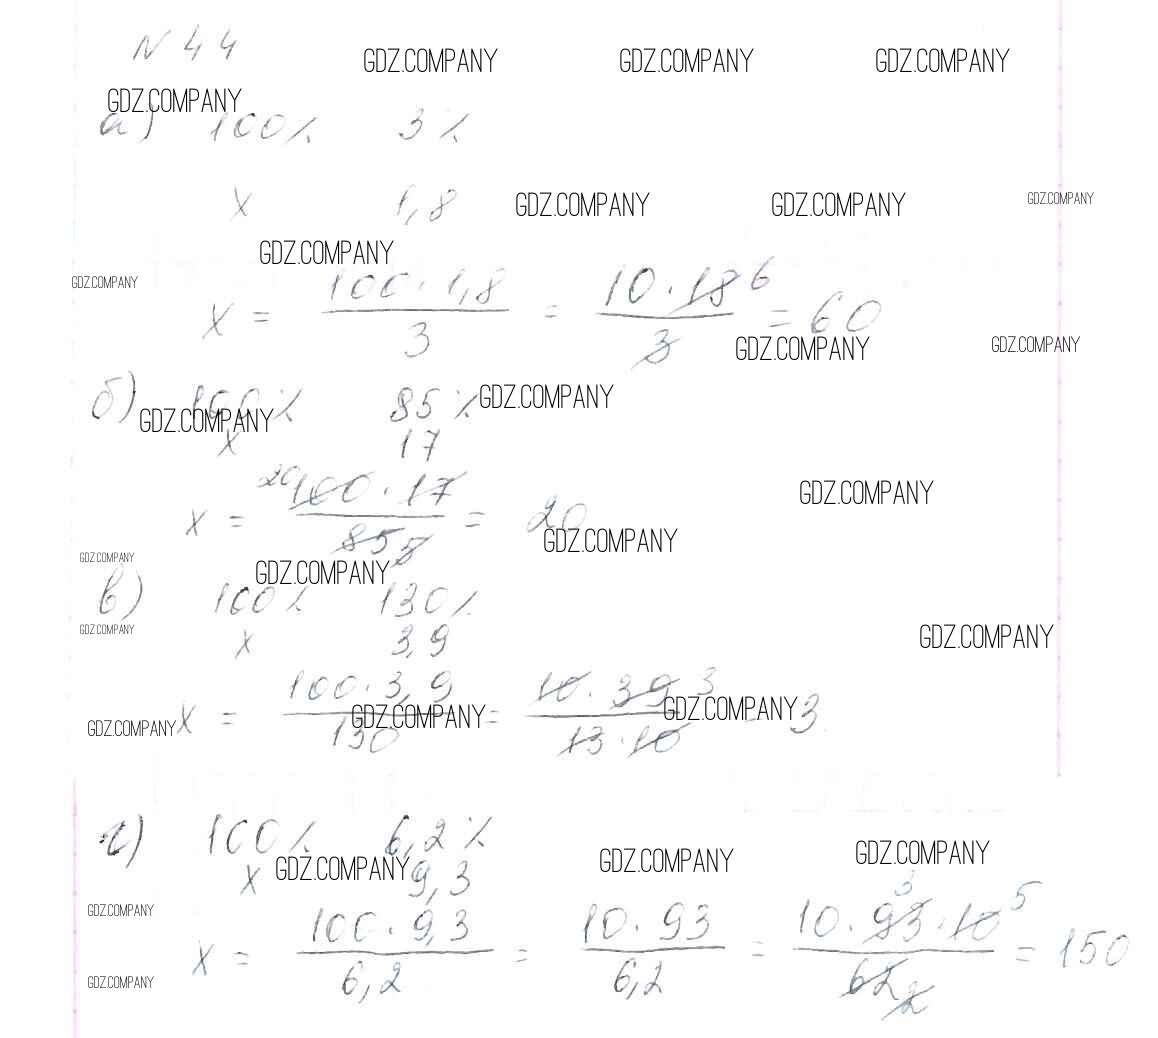 N 44
GDZ.COMPANY GDZ.COMPANY GDZ.COMPANY
GDZ.COMPANY
а) 100% 3%
x 1,8 GDZ.COMPANY GDZ.COMPANY GDZ.COMPANY
GDZ.COMPANY
GDZ.COMPANY
x = 100 · 1,8 / 3 = 10 · 18 6 / 3 = 60
GDZ.COMPANY GDZ.COMPANY
б) 100% 85% GDZ.COMPANY
GDZ.COMPANY
x 17
x = 20 100 · 17 / 85 5 = 20
GDZ.COMPANY
GDZ.COMPANY
GDZ.COMPANY
GDZ.COMPANY
в) 100% 130%
GDZ.COMPANY x 3,9 GDZ.COMPANY
x = 100 · 3,9 / 130 = 10 · 39 3 / 13 · 10 3
GDZ.COMPANY GDZ.COMPANY GDZ.COMPANY
г) 100% 6,2%
x 9,3
GDZ.COMPANY GDZ.COMPANY GDZ.COMPANY
GDZ.COMPANY
x = 100 · 9,3 / 6,2 = 10 · 93 / 6,2 = 10 · 93 3 · 10 5 / 62 2 = 150
GDZ.COMPANY